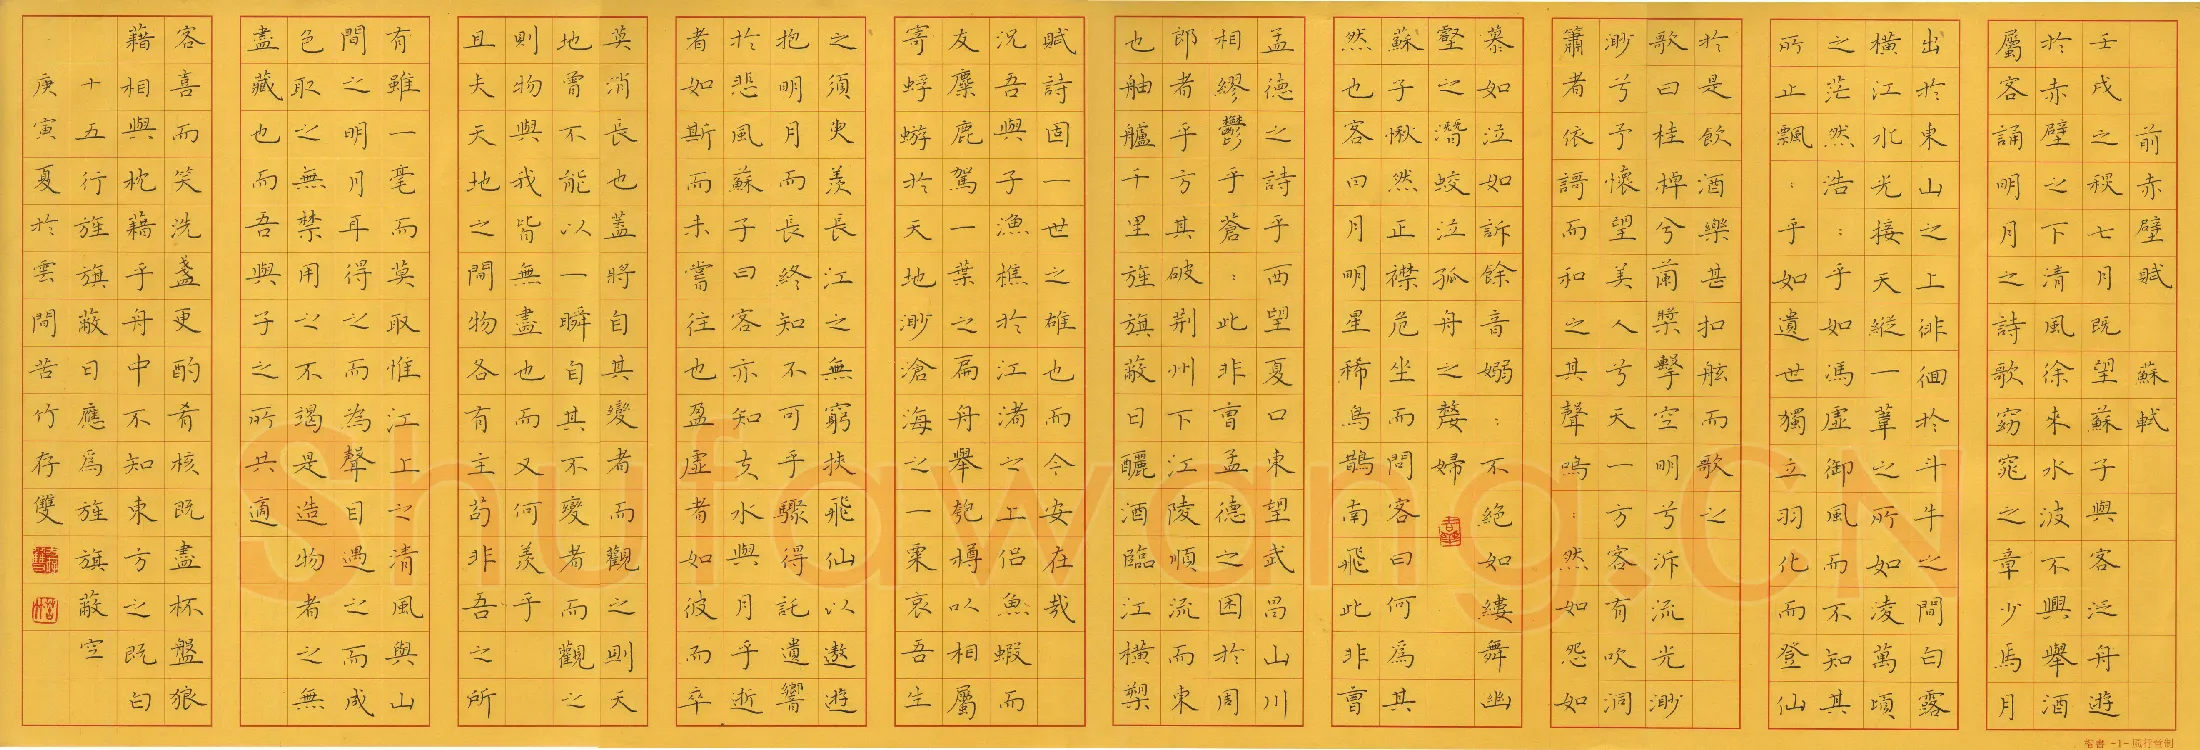 前赤壁賦 蘇軾
壬戌之秋七月既望蘇子與客泛舟遊
於赤壁之下清風徐來水波不興舉酒
屬客誦明月之詩歌窈窕之章少焉月
出於東山之上徘徊於斗牛之間白露
橫江水光接天縱一葦之所如凌萬頃
之茫然浩:乎如馮虛御風而不知其
所止飄:乎如遺世獨立羽化而登仙
於是飲酒樂甚扣舷而歌之
歌曰桂棹兮蘭槳擊空明兮泝流光渺
渺兮予懷望美人兮天一方客有吹洞
簫者依謌而和之其聲嗚:然如怨如
慕如泣如訴餘音嫋:不絕如縷舞幽
壑之潛蛟泣孤舟之嫠婦
蘇子愀然正襟危坐而問客曰何爲其
然也客曰月明星稀烏鵲南飛此非曹
孟德之詩乎西望夏口東望武昌山川
相繆鬱乎蒼:此非曹孟德之困於周
郎者乎方其破荆州下江陵順流而東
也舳艫千里旌旗蔽日釃酒臨江橫槊
賦詩固一世之雄也而今安在哉
況吾與子漁樵於江渚之上侶魚蝦而
友麋鹿駕一葉之扁舟舉匏樽以相屬
寄蜉蝣於天地渺滄海之一粟哀吾生
之須臾羨長江之無窮挾飛仙以遨遊
抱明月而長終知不可乎驟得託遺響
於悲風蘇子曰客亦知夫水與月乎逝
者如斯而未嘗往也盈虛者如彼而卒
莫消長也蓋將自其變者而觀之則天
地曾不能以一瞬自其不變者而觀之
則物與我皆無盡也而又何羨乎
且夫天地之間物各有主苟非吾之所
有雖一毫而莫取惟江上之清風與山
間之明月耳得之而為聲目遇之而成
色取之無禁用之不竭是造物者之無
盡藏也而吾與子之所共適
客喜而笑洗盞更酌肴核既盡杯盤狼
藉相與枕藉乎舟中不知東方之既白
十五行旌旗蔽日應爲旌旗蔽空
庚寅夏於雲間苦竹存雙
Shufawang.CN